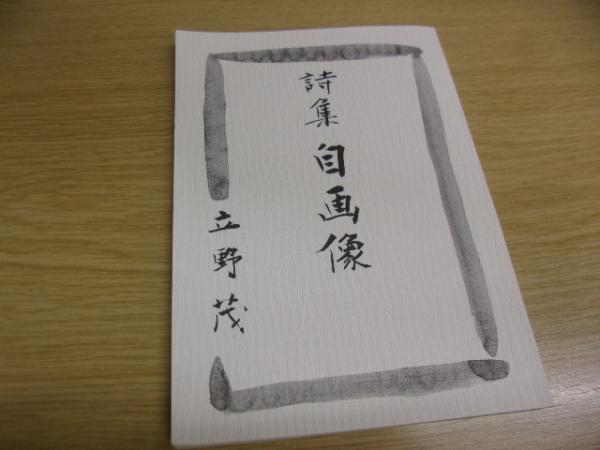 詩集 自画像
立野茂